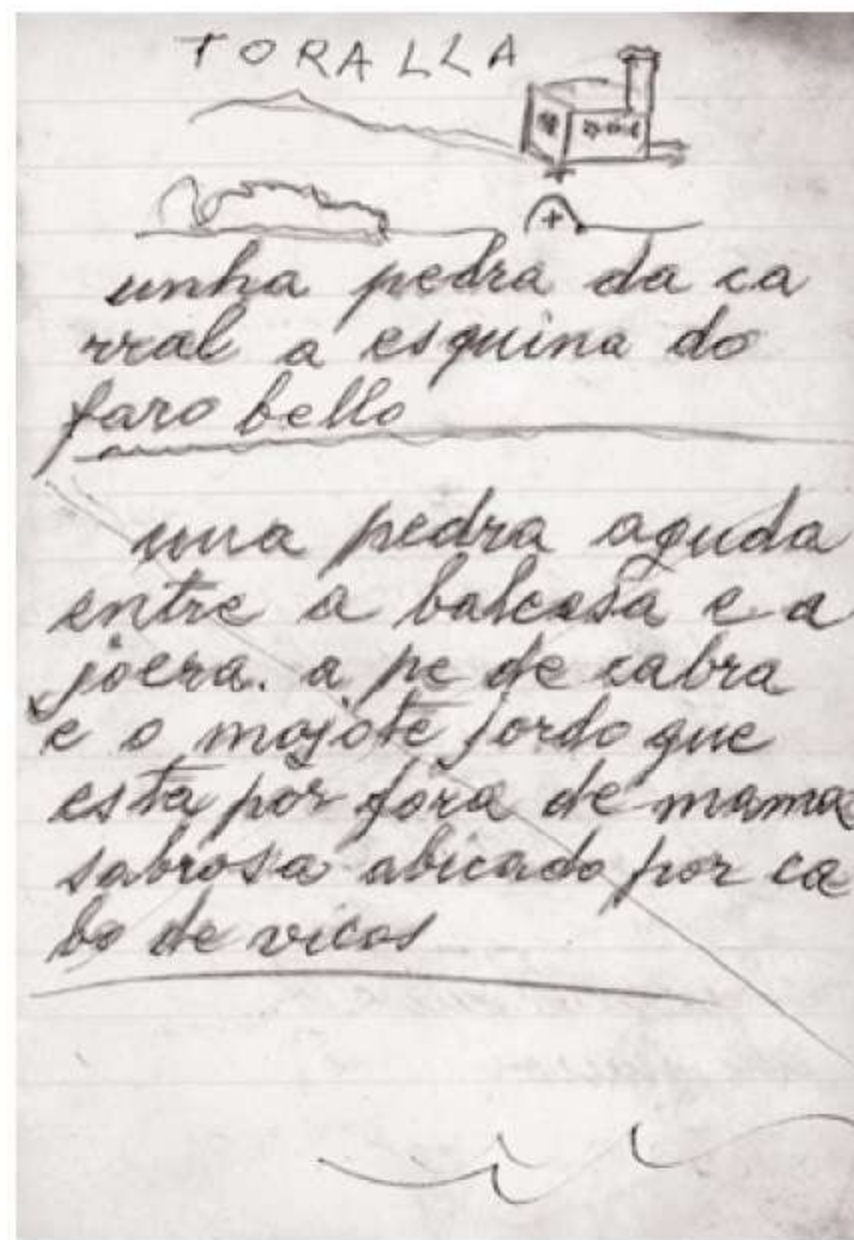 TORALLA
unha pedra da ca
rral a esquina do
faro bello
una pedra aguda
entre a baleosa e a
joera. a pe de cabra
e o mojote jordo que
esta por fora de mama
sabrosa abicado por ca
bo de vicos